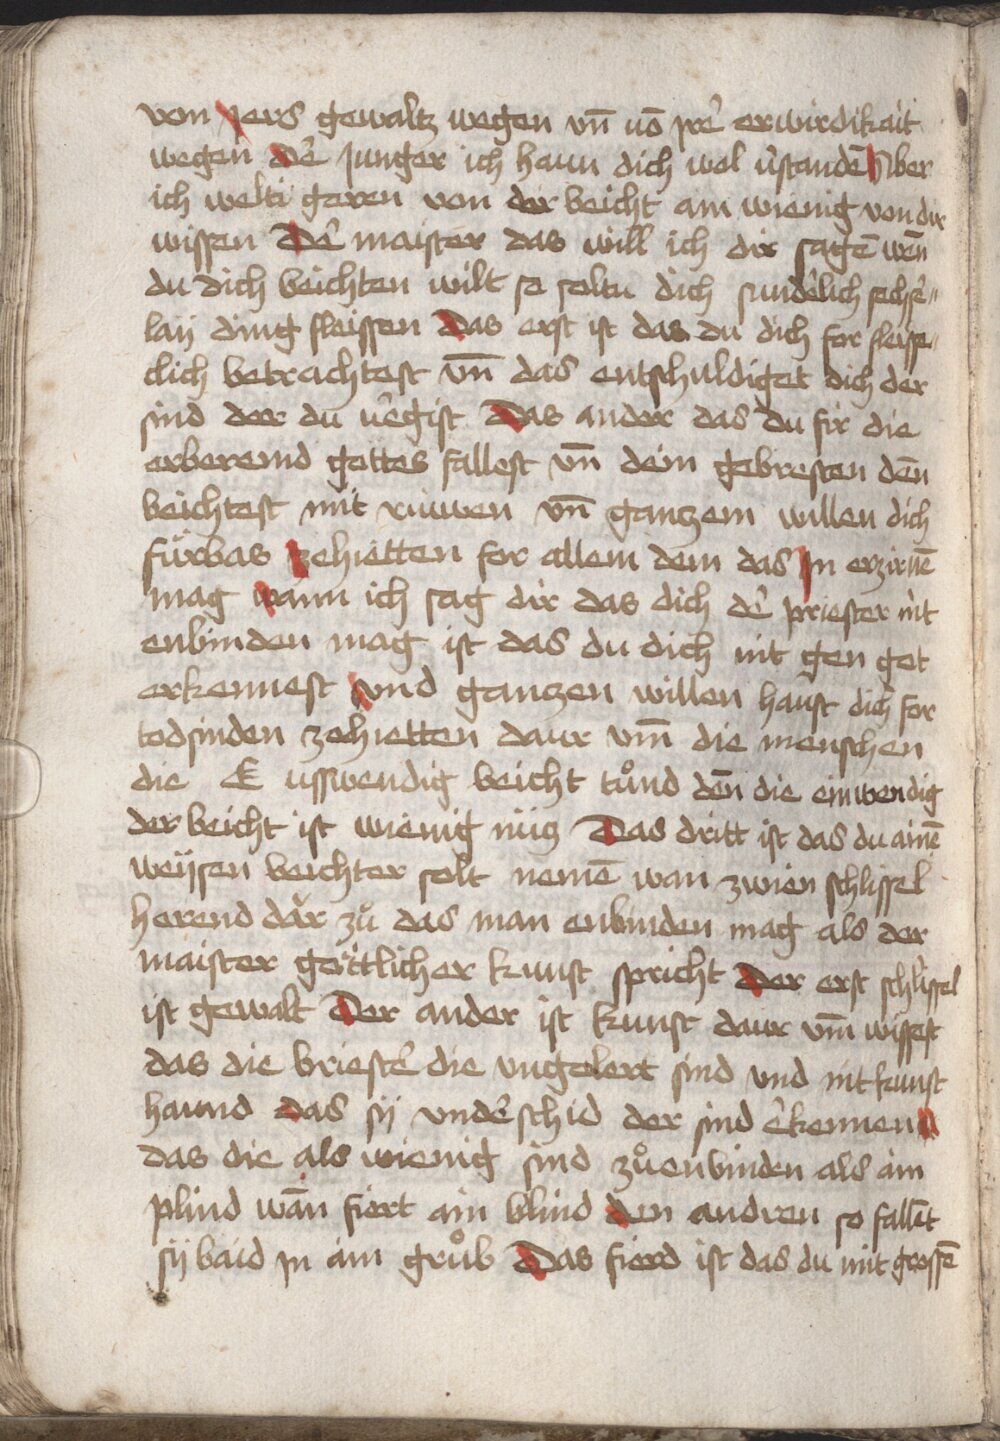 von yers gewaltz wegen vn̄ vō yre᷑ erwirdikait
wegen De᷑ Junger ich haun dich wol v᷑standē Aber
ich welti geren von der beicht am wienig von dir
wissen De᷑ maister das will ich dir sagē wen̄
du dich beichten wilt so soltu dich sunde᷑lich sechse᷑„
laÿ ding fleissen Das erst ist das du dich for fleisse„
clich betrachtest vn̄ das entschuldiget dich der
sind der du v᷑egist Das ander das du fir die
erberemd gottes fallest vn̄ dein gebresten den̄
beichtest mit ruiwen vn̄ ganczem willen dich
fu̍rbas zehietten for allem dem das In erzirnē
mag wann ich sag dir das dich de᷑ priester nit
enbinden mag ist das du dich nit gen got
erkennest vnd ganczen willen haust dich for
todsinden zehietten daur vm̄ die menschen
die E usswendig beicht tůnd den̄ die einwendig
der beicht ist wienig nücz Das dritt ist das du ainē
weÿsen beichter solt nemē wan zwien schlissel
herend dar zů das man enbinden mag als der
maister gottlicher kunst spricht Der erst schlissel
ist gewalt Der ander ist kunst daur vm̄ wissest
das die brieste᷑ die vngelert sind vnd nit kunst
haund das sÿ vnde᷑schid der sind e᷑kennen
das die als wienig sind zůenbinden als ain
plind wan̄ fiert ain blind den andren so fallēt
sÿ baid in ain grůb Das fierd ist das du mit grossē